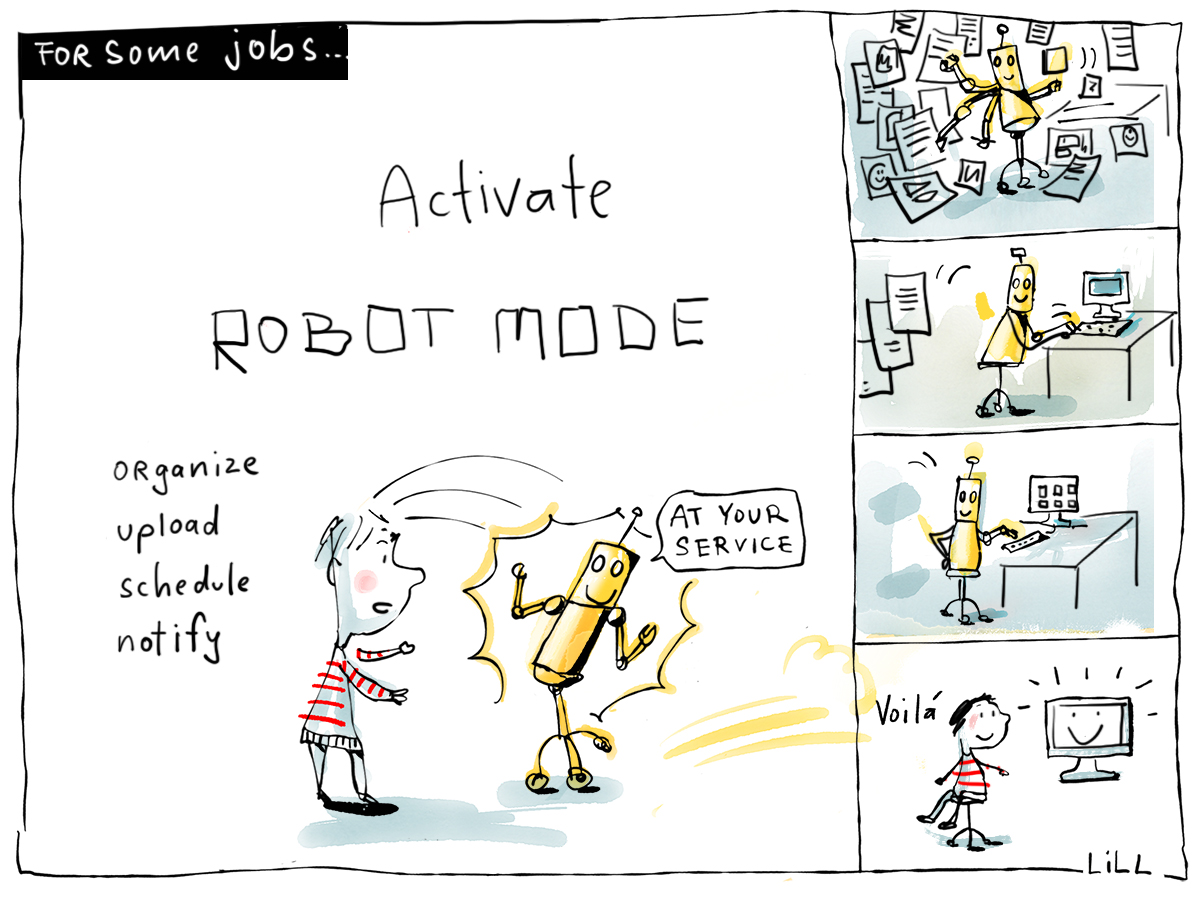 FOR some jobs...
Activate
ROBOT MODE
ORganize
upload
schedule
notify
AT YOUR
SERVICE
Voilá
LiLL